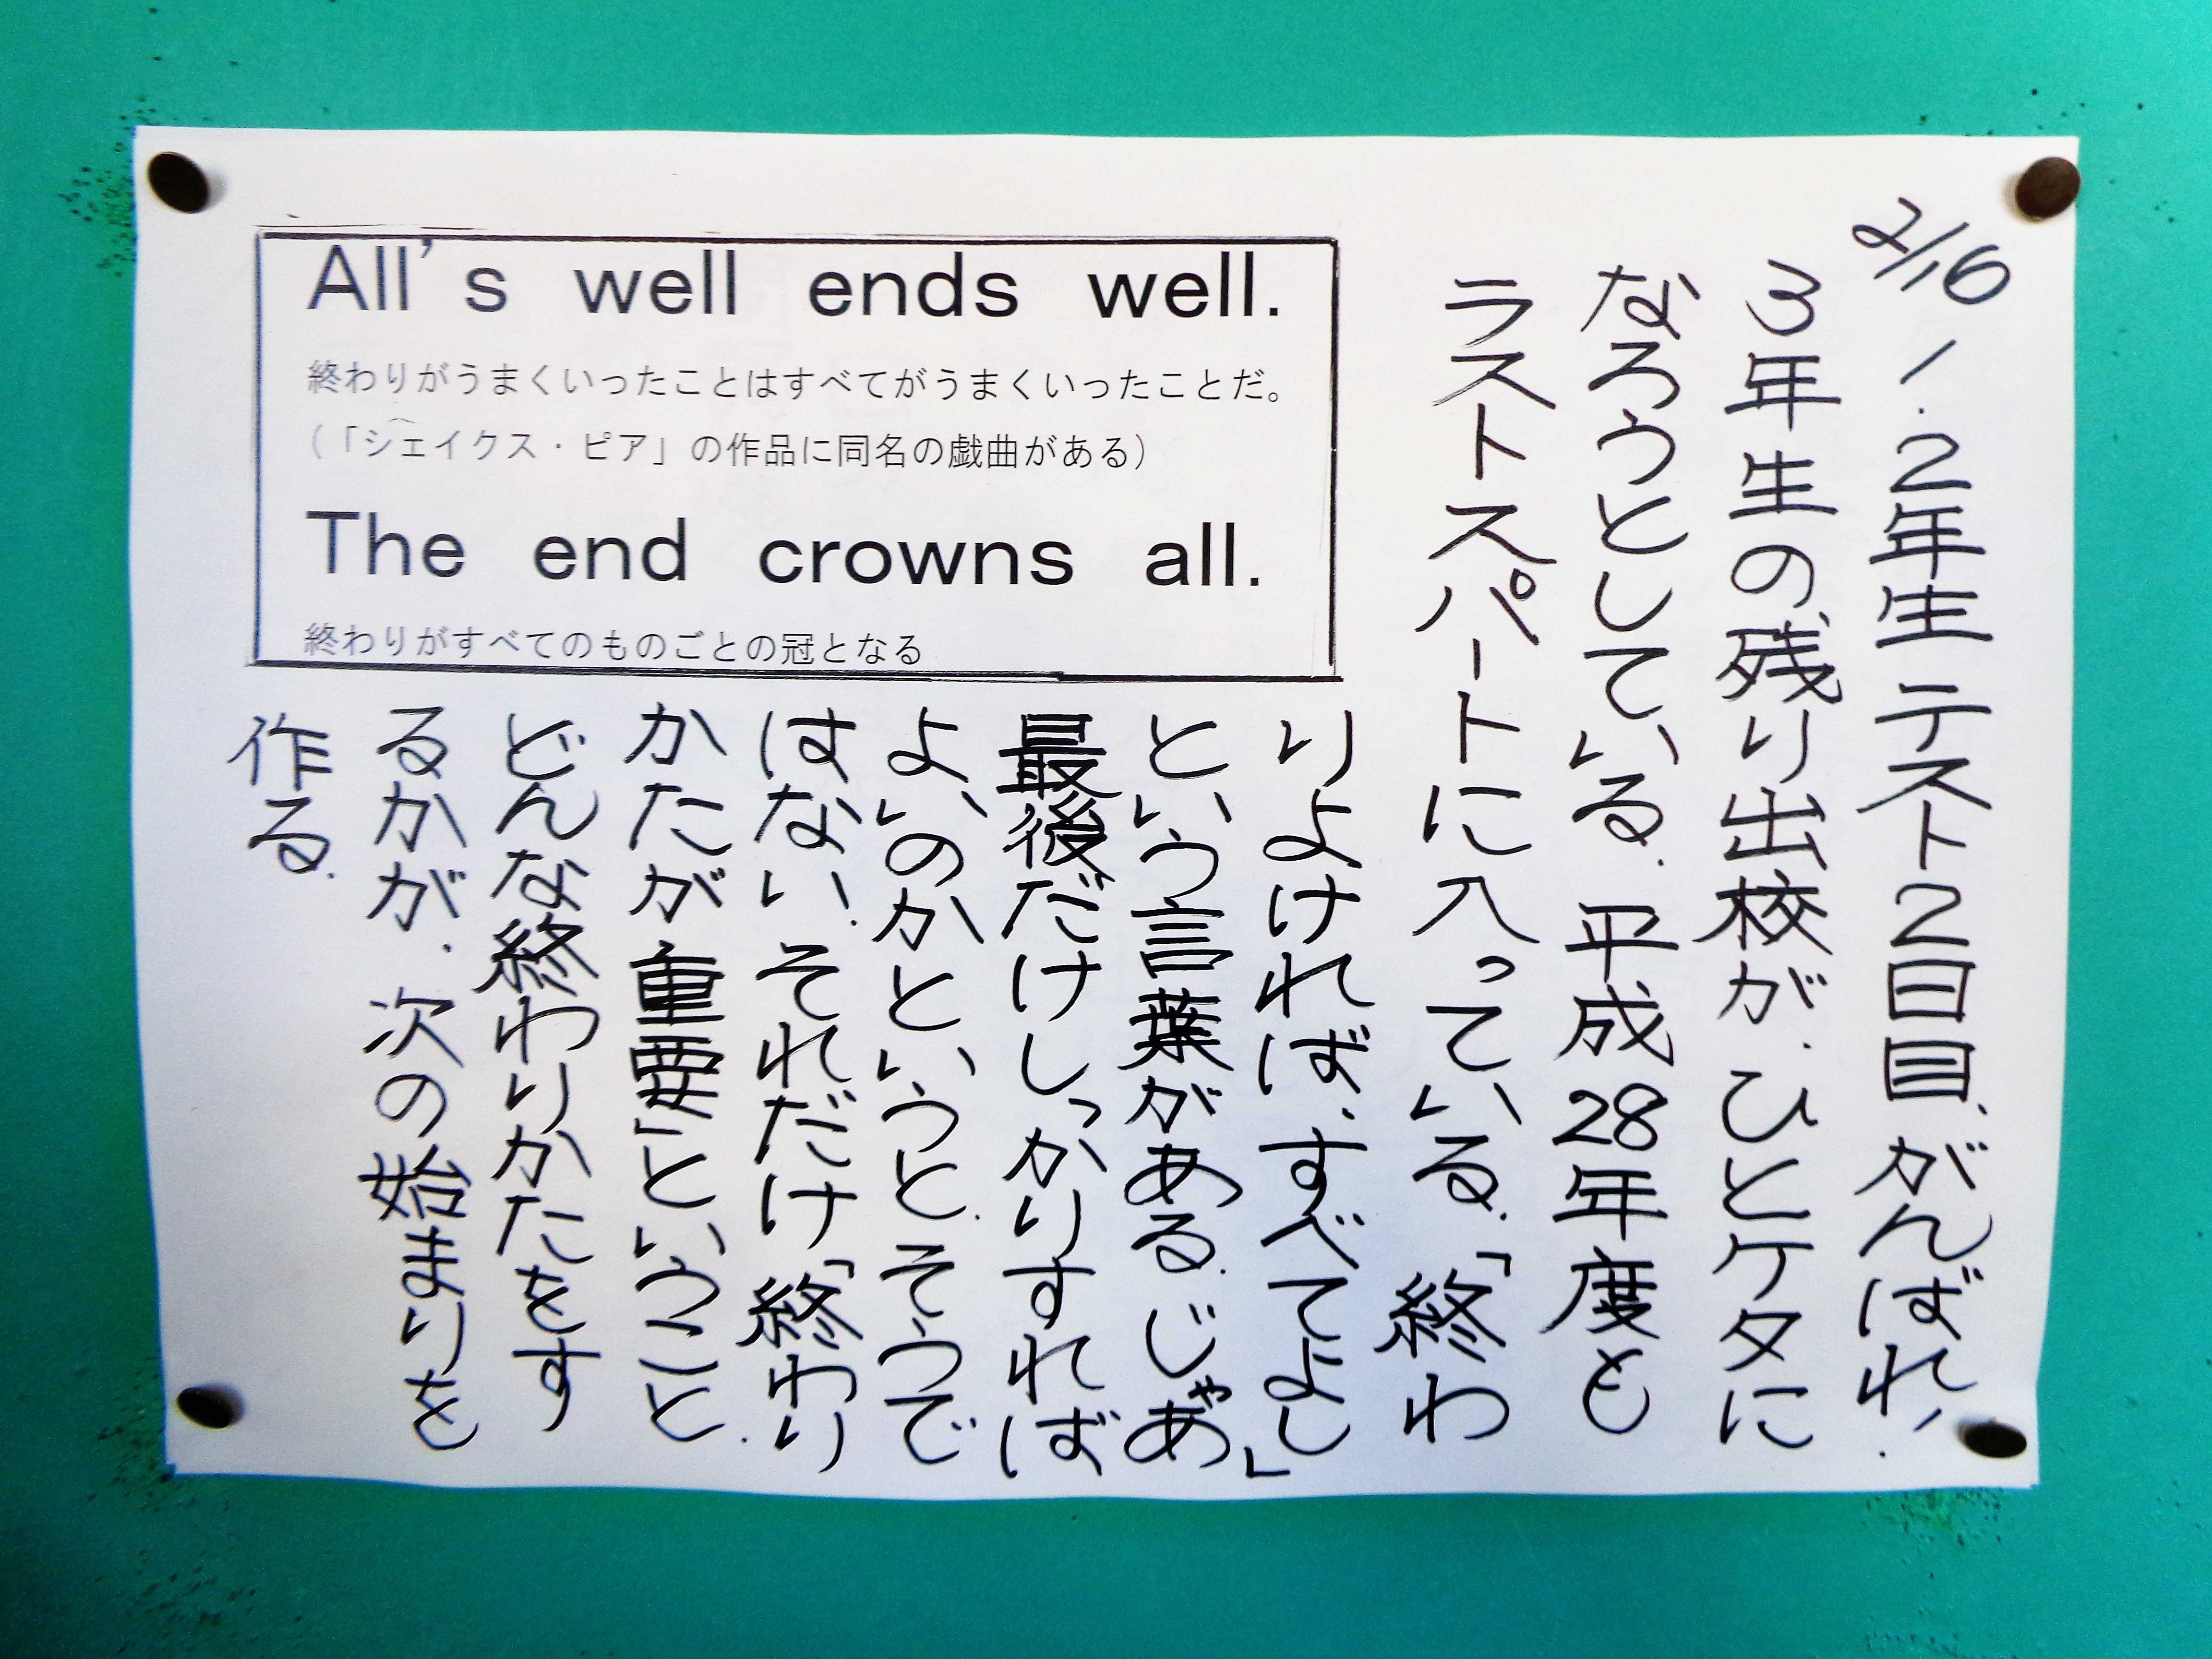 2/16
1.2年生テスト2日目、がんばれ！
3年生の残り出校が、ひとケタに
なろうとしている。平成28年度も
ラストスパートに入っている。「終わ
りよければ、すべてよし」
という言葉がある。じゃあ
最後だけしっかりすれば
よいのかというと、そうで
はない。それだけ「終わり
かたが重要」ということ。
どんな終わりかたをす
るかが、次の始まりを
作る。
All's well ends well.
終わりがうまくいったことはすべてがうまくいったことだ。
（「シェイクス・ピア」の作品に同名の戯曲がある）
The end crowns all.
終わりがすべてのものごとの冠となる